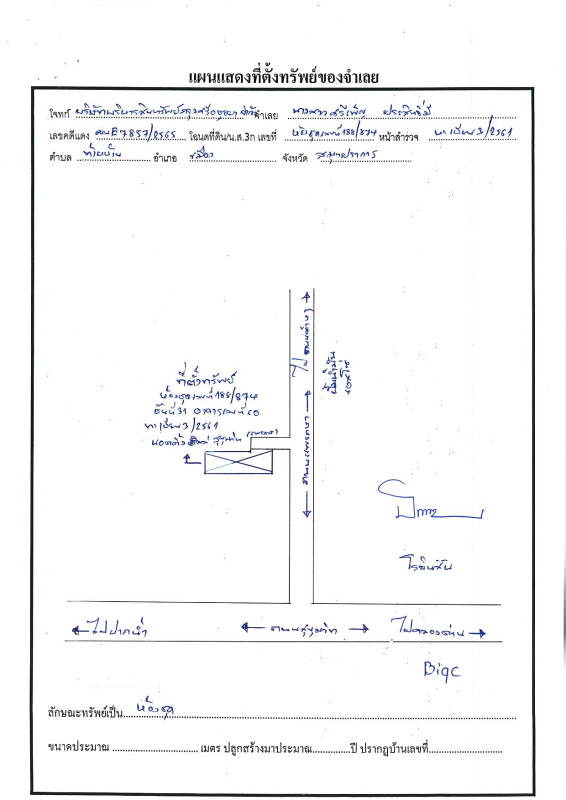 แผนแสดงที่ตั้งทรัพย์ของจำเลย
โจทก์ บริษัทบริหารสินทรัพย์กรุงศรีอยุธยา จำกัด จำเลย นางสาวศรีเพ็ญ
เลขคดีแดง ผบE7857/2565 โฉนดที่ดิน/น.ส.3ก เลขที่ ห้องชุดเลขที่ 188/874 หน้าสำรวจ ทะเบียน 3/2561
ตำบล ท้ายบ้าน อำเภอ เมือง จังหวัด สมุทรปราการ
ที่ตั้งทรัพย์
ห้องชุดเลขที่ 188/874
ชั้นที่ 31 อาคารเลขที่
ทะเบียน 3/2561
ถนนแพรกษา
ปั๊มน้ำมัน
โรบินสัน
ไปปากน้ำ
ถนนสุขุมวิท
ไปคลองด่าน
Bigc
ลักษณะทรัพย์เป็น ห้องชุด
ขนาดประมาณ ........ เมตร ปลูกสร้างมาประมาณ ........ ปี ปรากฏบ้านเลขที่ ........